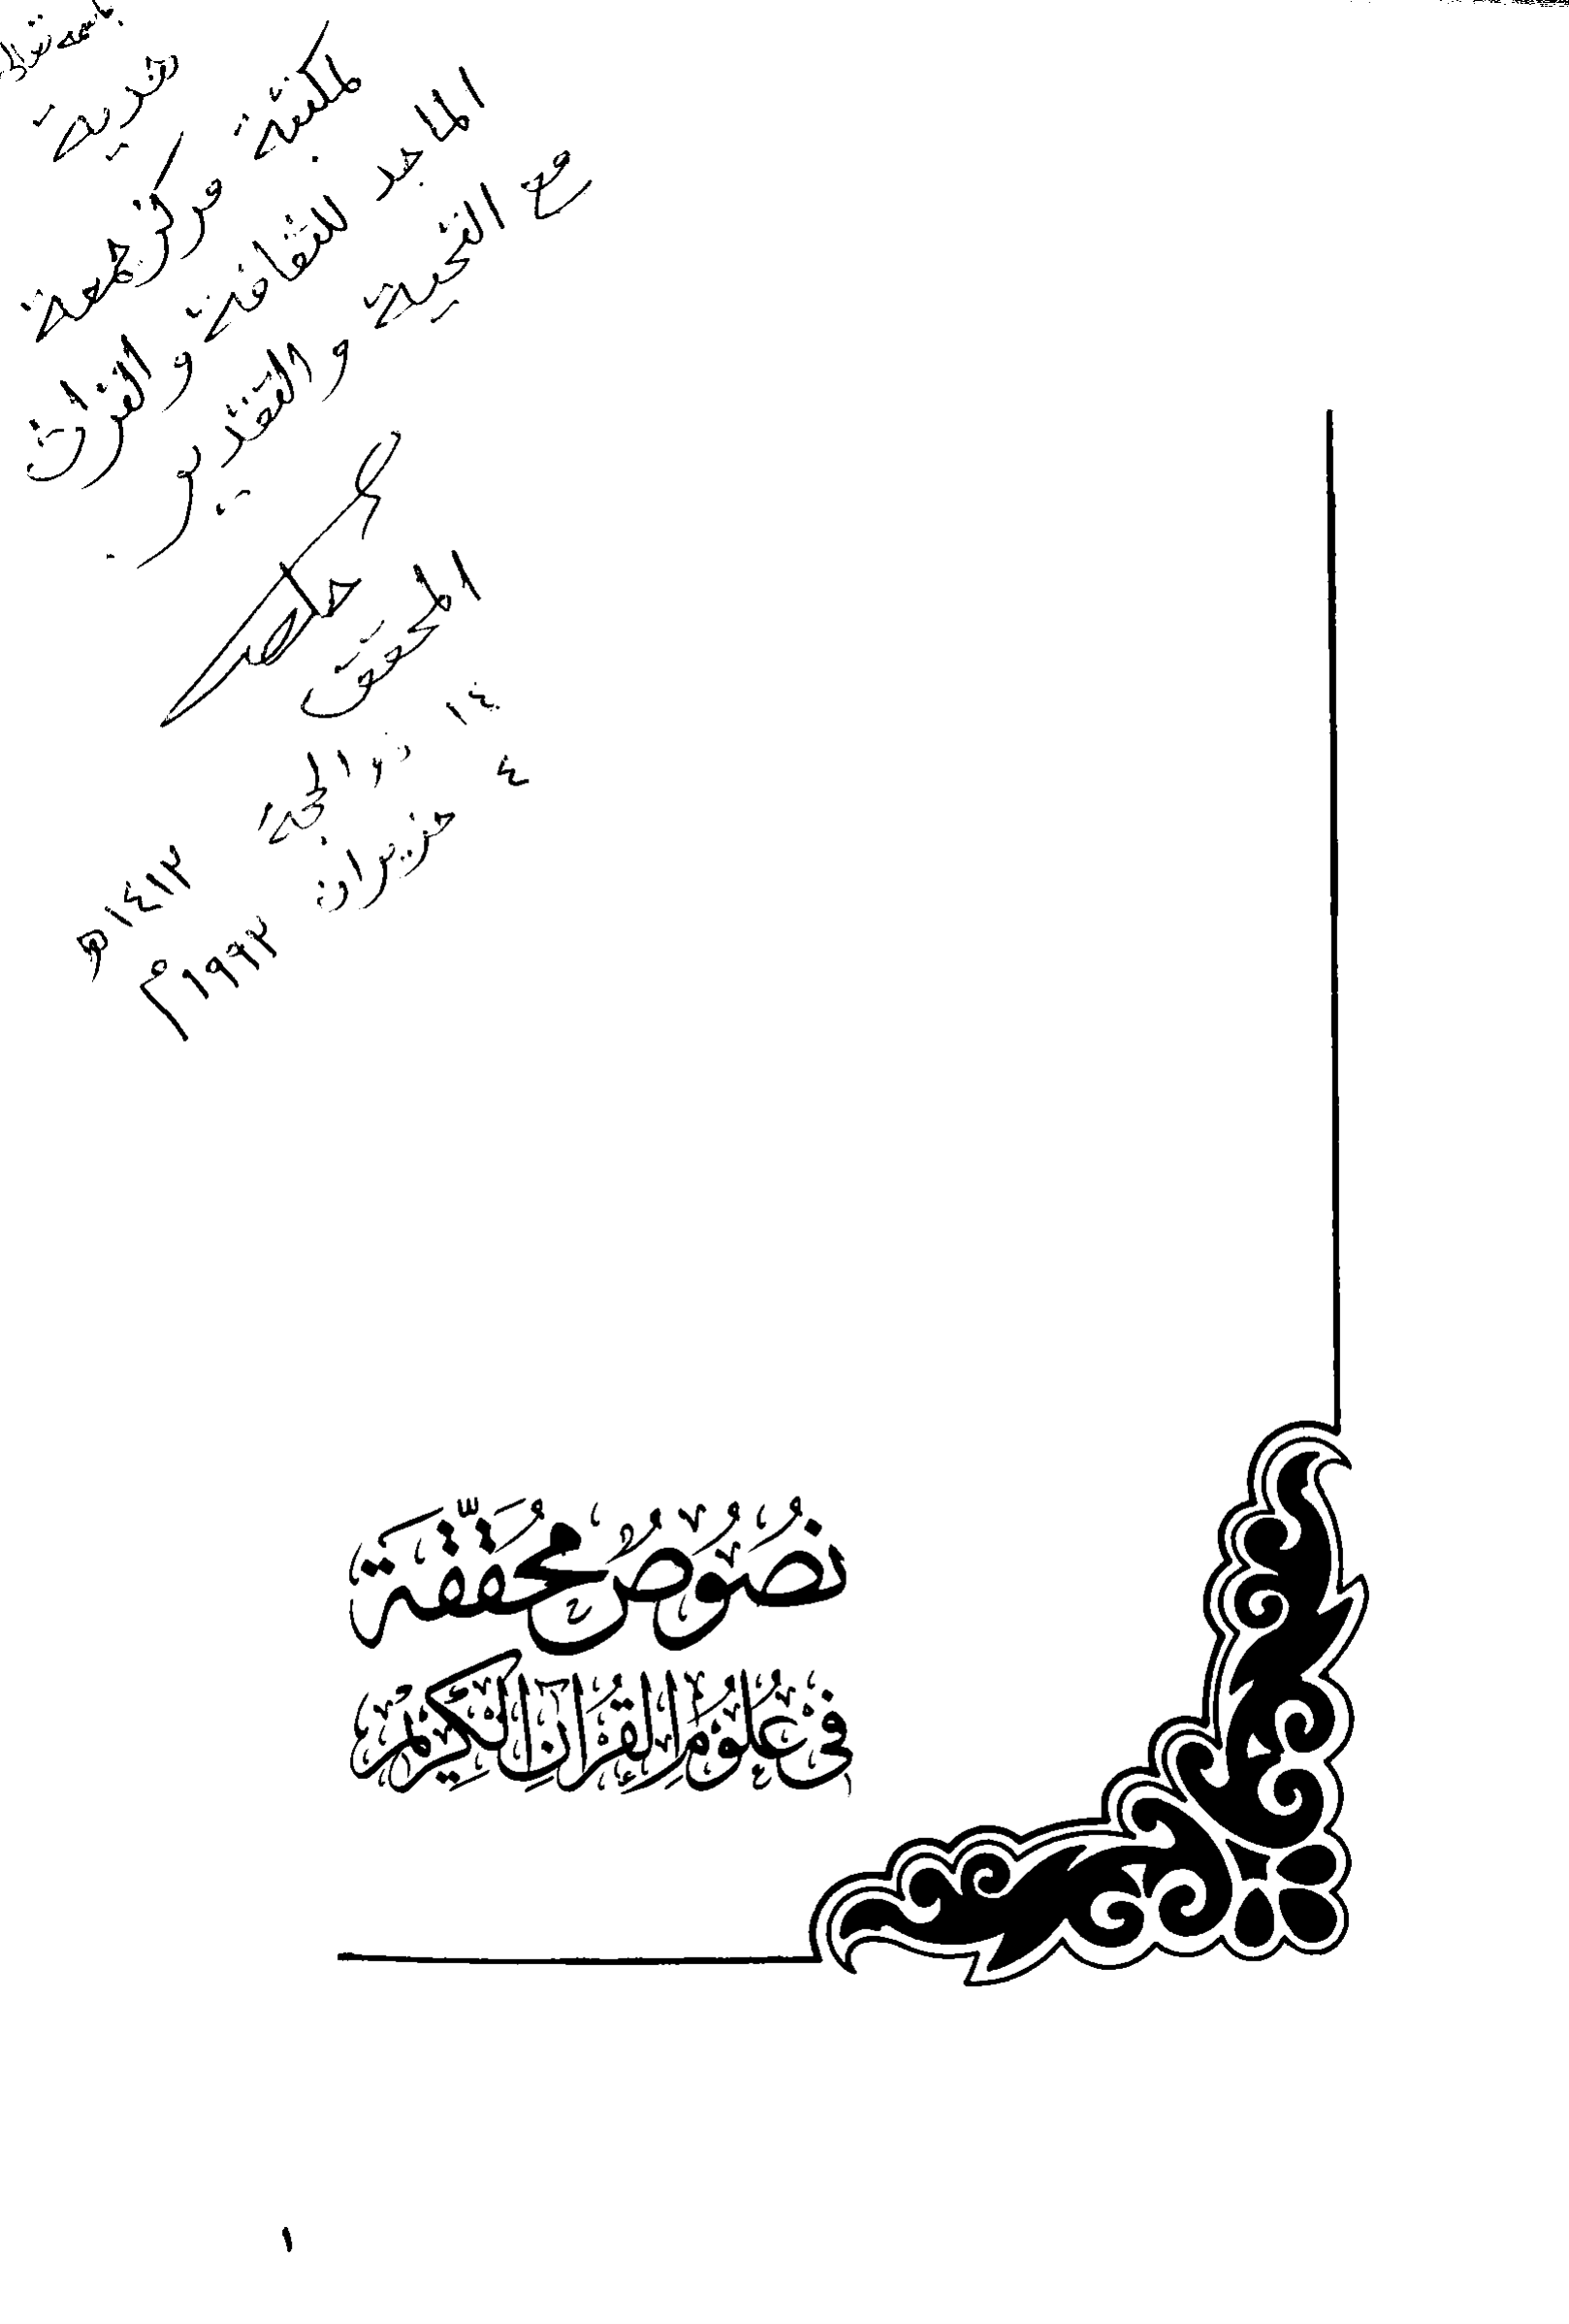 باسمه تعالى
هدية
لمكتبة مركز جمعة
الماجد للثقافة والتراث
مع التحية والتقدير.
المحقق
١٤ ذو الحجة ١٤١٢هـ
٤ حزيران ١٩٩٢م
نُصُوصٌ مُحَقَّقَة
فِي عُلُومِ القُرْآنِ الكَرِيمِ
١